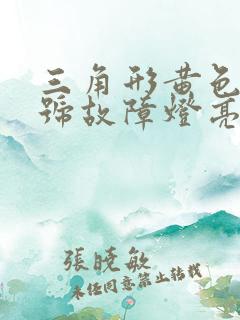 三角形黄色
號故障燈亮
張曉敏
未任同意禁止转载